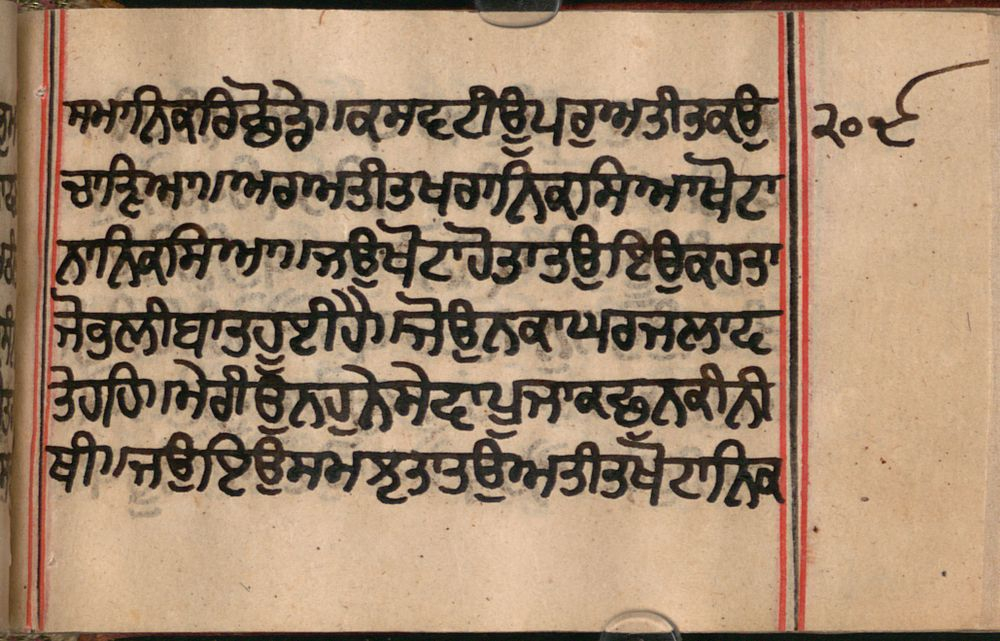 ਸਮਾਨਿਕੀਰਿਛੋਤ੍ਰੇ॥ਕਸਵਟੀਉਪਰੁਅਤੀਤਕਉ
ਚਾੜਿਆ॥ਅਰਅਤੀਤਖਰਾਨਿਕਸਿਆਖੋਟਾ
ਨਾਨਿਕਸਿਆ॥ਜਉਖੋਟਾਹੋਤਾਤਉਇਉਕਹਤਾ
ਜੋਭਲੀਬਾਤਹੁਈਹੈ॥ਜੋਉਨਕਾਘਰਜਲਾਦ
ਤੇਹਹਿ॥ਮੇਰੀਉਨਹੁਨੇਸੇਵਾਪੂਜਾਕਛੁਨਕੀਨੀ
ਥੀ॥ਜਉਇਉਸਮਝਤਾਤਉਅਤੀਤਖੋਟਾਨਿਕ
੨੦੯